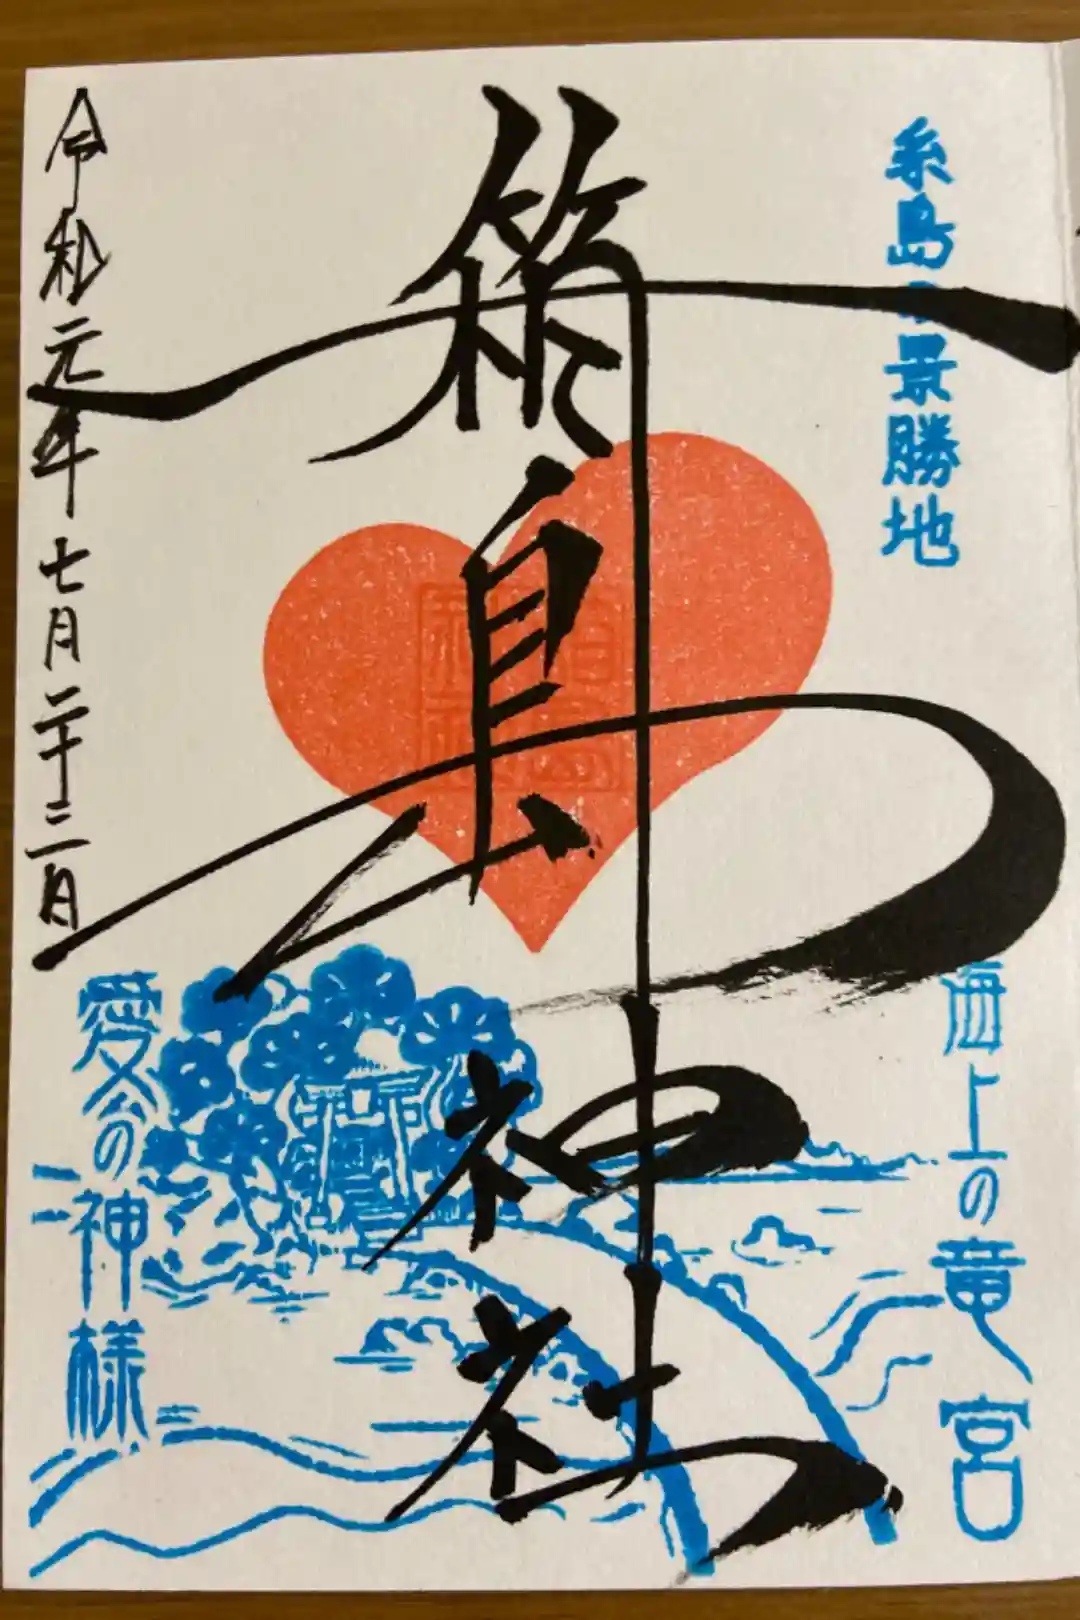 糸島の景勝地
海上の竜宮
箱島神社
愛の神様
令和元年七月二十三日